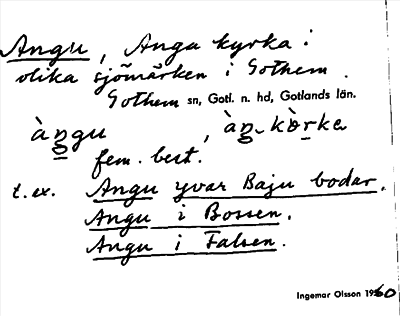 Angu, Anga kyrka i
olika sjömärken i Gothem.
Gothem sn, Gotl. n. hd, Gotlands län.
àn̲gu, àn̲-kò̲rke
fem. best.
t.ex. Angu yvar Baju bodar.
Angu i Bossen.
Angu i Falsen.
Ingemar Olsson 1960